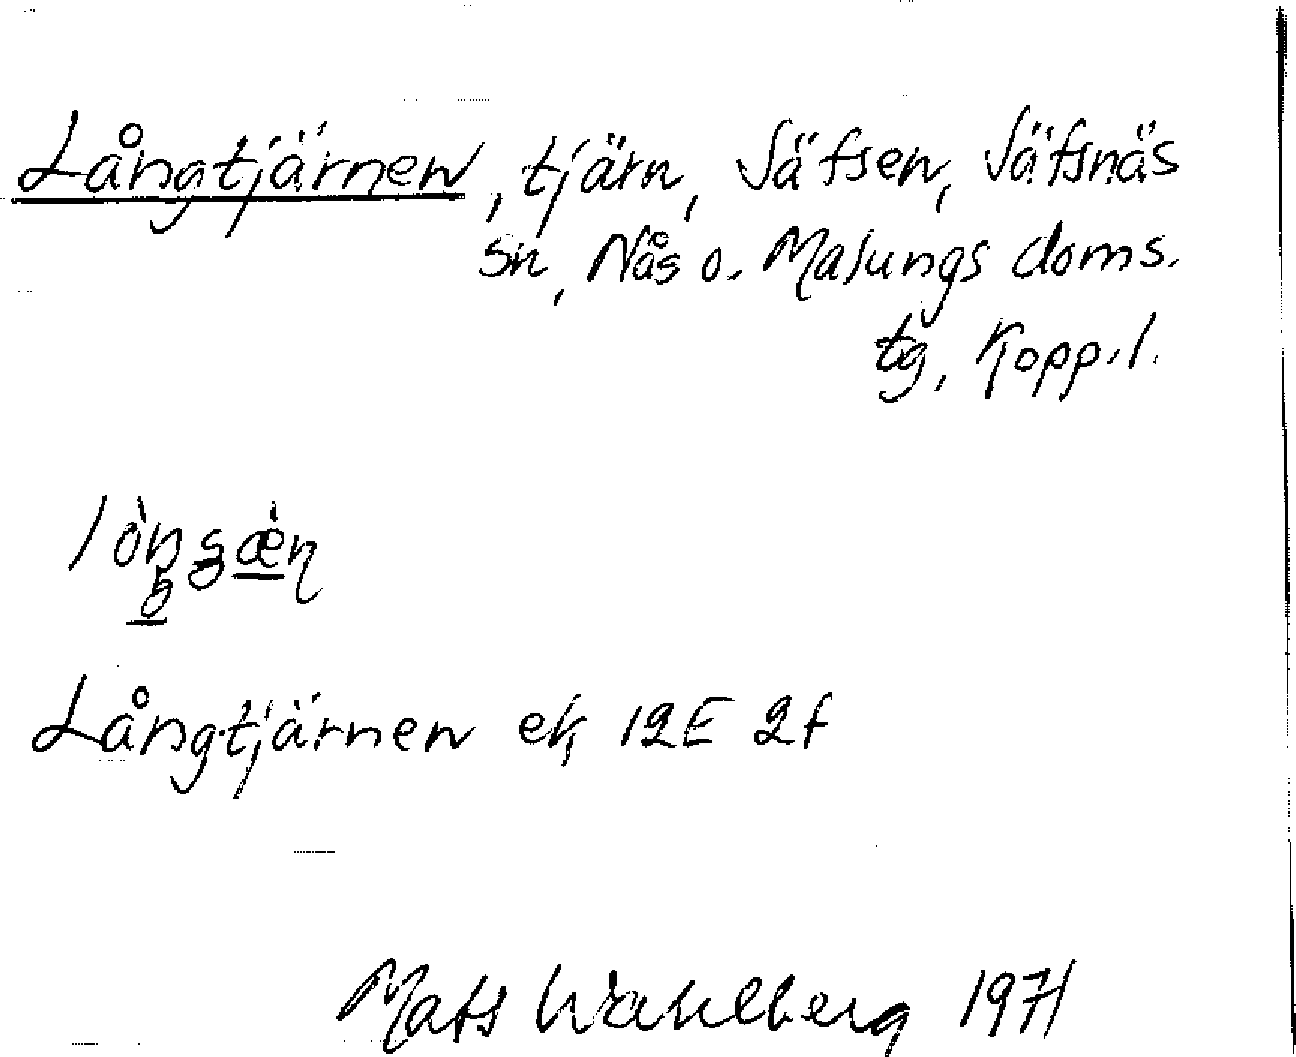 Långtjärnen, tjärn, Säfsen, Säfsnäs
sn, Nås o. Malungs doms.
tg, Kopp. l.
Långtjärnen ek 12E 2f
Mats Wahlberg 1971